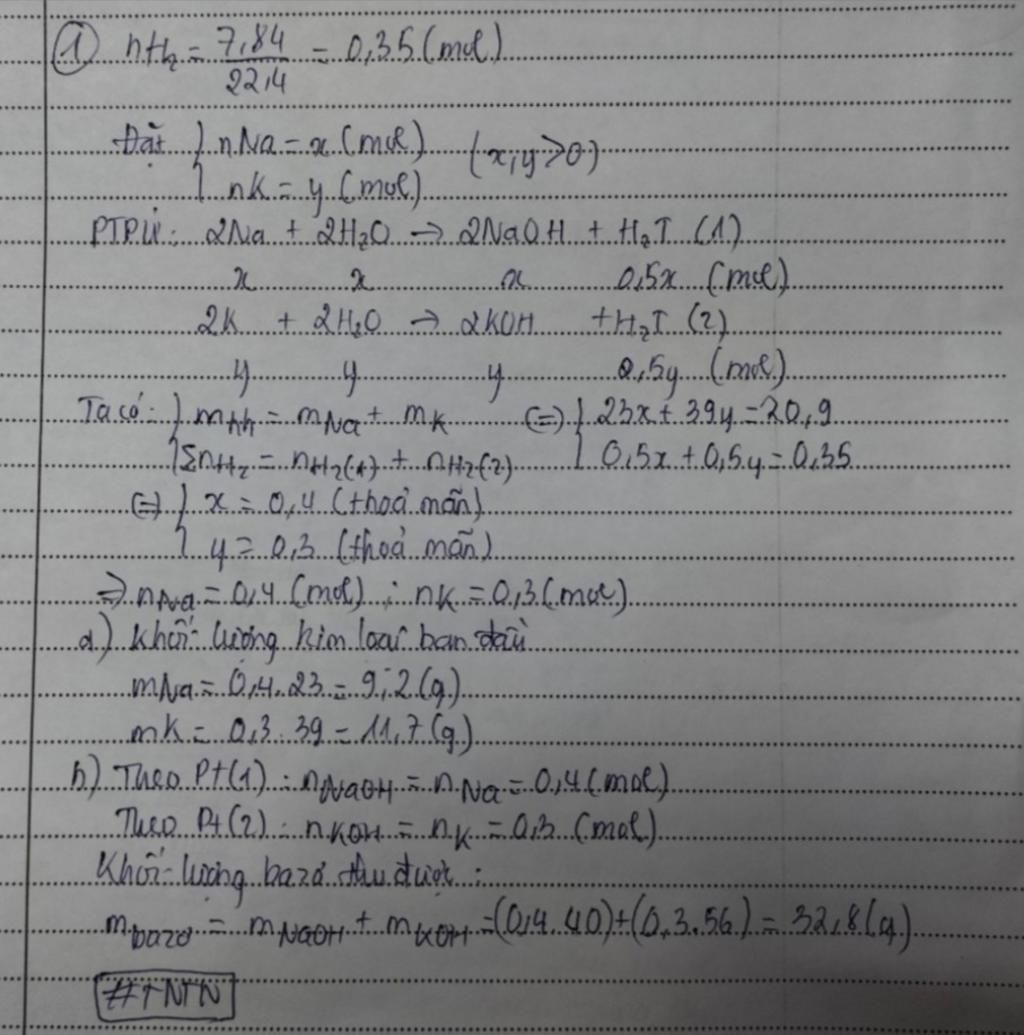 ① nH₂ = 7,84/22,4 = 0,35 (mol)
Đặt { nNa = x (mol) (x,y>0)
{ nK = y (mol)
PTPƯ: 2Na + 2H₂O → 2NaOH + H₂↑ (1)
x x x 0,5x (mol)
2K + 2H₂O → 2KOH + H₂↑ (2)
y y y 0,5y (mol)
Ta có: { mhh = mNa + mK (=) { 23x + 39y = 20,9
{ ΣnH₂ = nH₂(1) + nH₂(2) { 0,5x + 0,5y = 0,35
(=) { x = 0,4 (thoả mãn)
{ y = 0,3 (thoả mãn)
=> nNa = 0,4 (mol) ; nK = 0,3 (mol)
a) Khối lượng kim loại ban đầu
mNa = 0,4.23 = 9,2 (g)
mK = 0,3.39 = 11,7 (g)
b) Theo Pt(1): nNaOH = nNa = 0,4 (mol)
Theo Pt(2): nKOH = nK = 0,3 (mol)
Khối lượng bazơ thu được:
mbazơ = mNaOH + mKOH = (0,4.40) + (0,3.56) = 32,8 (g)
#TNTN